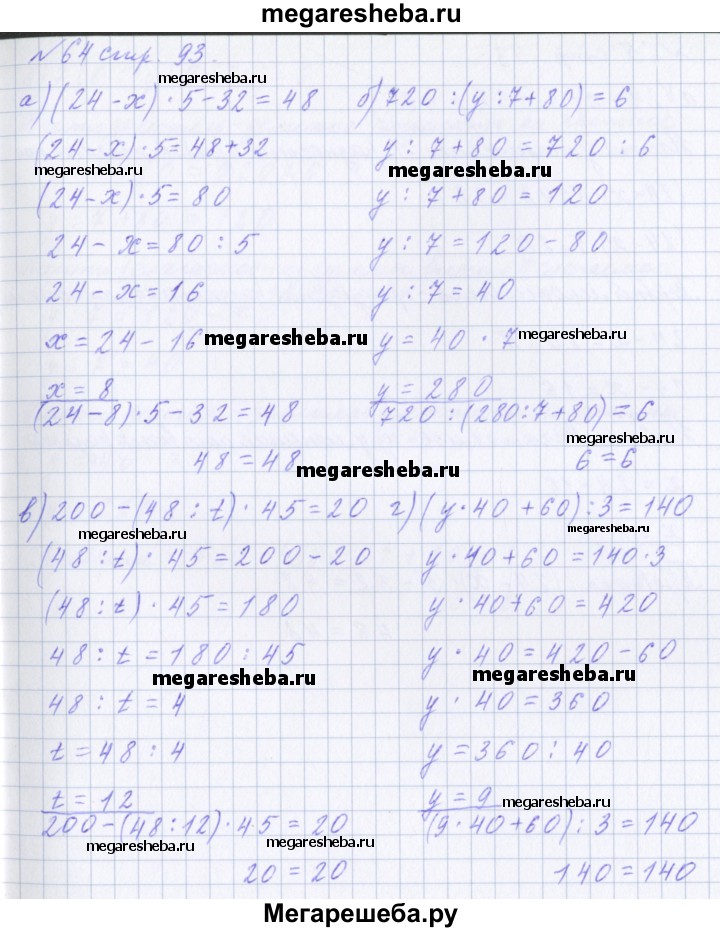 megaresheba.ru
№64 стр. 93.
megaresheba.ru
а) (24 - x) · 5 - 32 = 48 б) 720 : (y : 7 + 80) = 6
(24 - x) · 5 = 48 + 32 y : 7 + 80 = 720 : 6
megaresheba.ru megaresheba.ru
(24 - x) · 5 = 80 y : 7 + 80 = 120
24 - x = 80 : 5 y : 7 = 120 - 80
24 - x = 16 y : 7 = 40
x = 24 - 16 megaresheba.ru y = 40 · 7 megaresheba.ru
x = 8 y = 280
(24 - 8) · 5 - 32 = 48 720 : (280 : 7 + 80) = 6
megaresheba.ru
48 = 48 megaresheba.ru 6 = 6
в) 200 - (48 : t) · 45 = 20 г) (y · 40 + 60) : 3 = 140
megaresheba.ru megaresheba.ru
(48 : t) · 45 = 200 - 20 y · 40 + 60 = 140 · 3
(48 : t) · 45 = 180 y · 40 + 60 = 420
48 : t = 180 : 45 y · 40 = 420 - 60
megaresheba.ru megaresheba.ru
48 : t = 4 y · 40 = 360
t = 48 : 4 y = 360 : 40
t = 12 y = 9 megaresheba.ru
200 - (48 : 12) · 45 = 20 (9 · 40 + 60) : 3 = 140
megaresheba.ru megaresheba.ru
20 = 20 140 = 140
Мегарешеба.ру